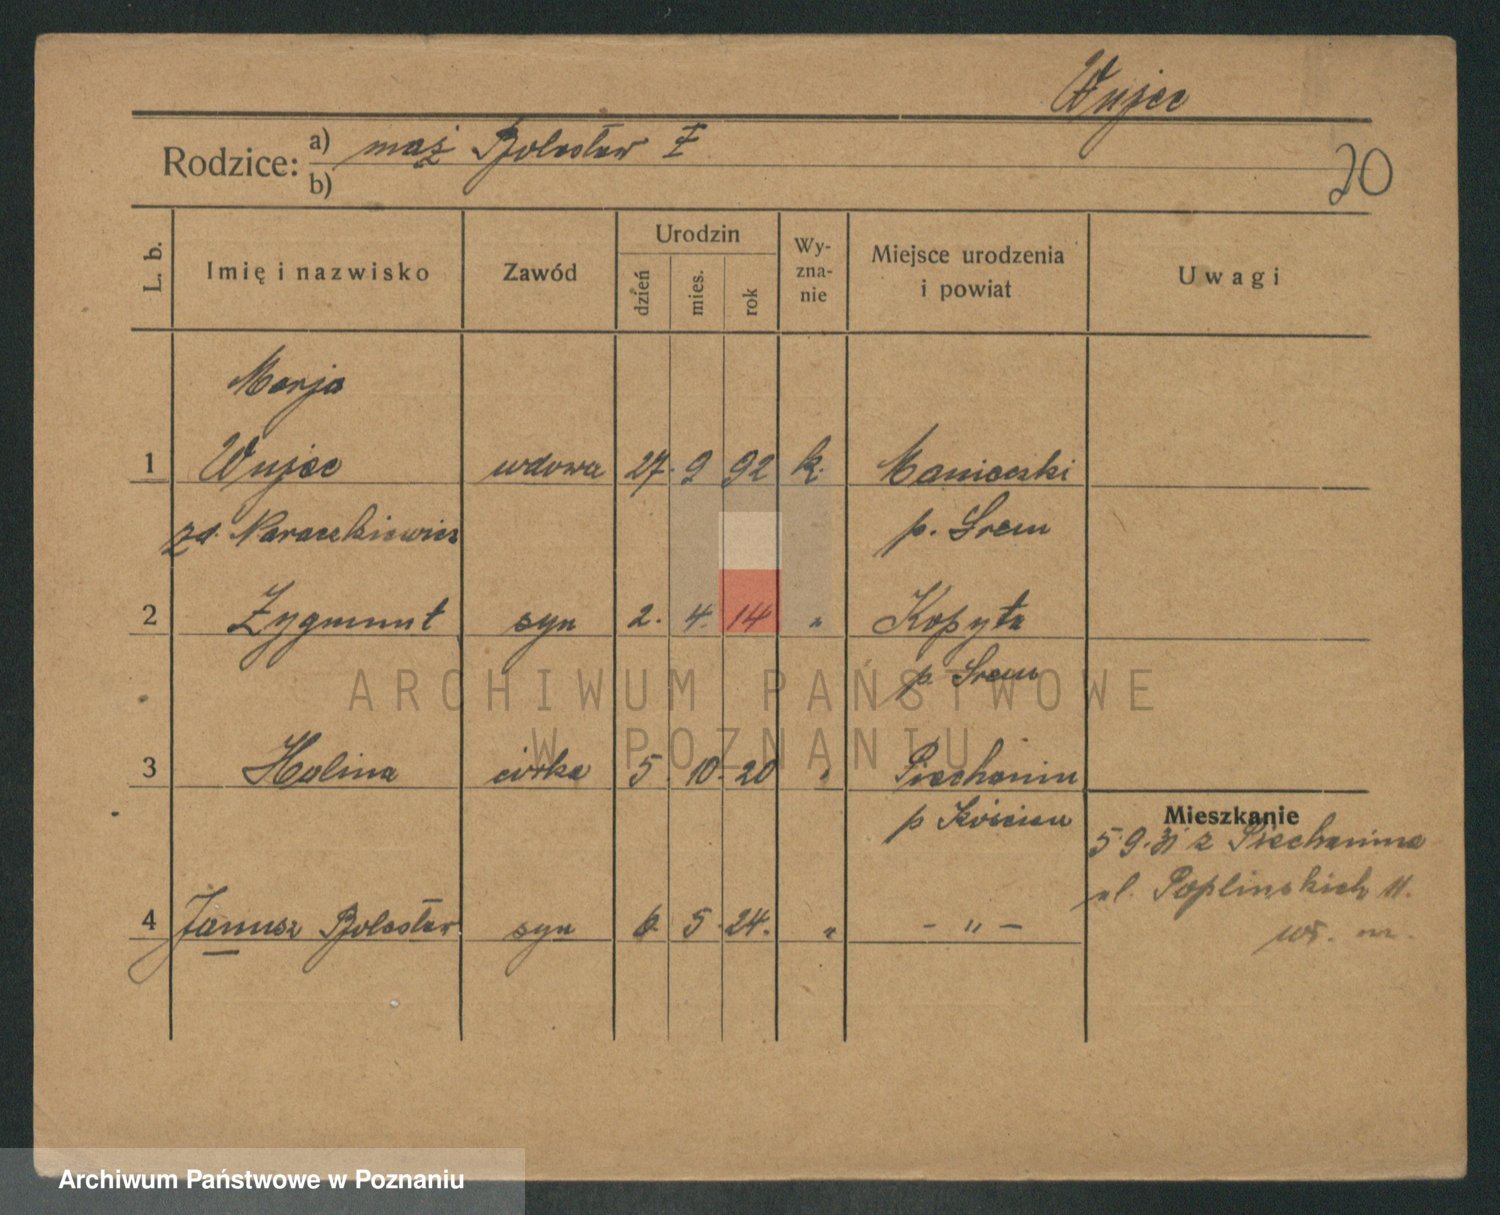 Wujec
Rodzice: a) mąż Bolesław Ɨ
b)
20
L. b. Imię i nazwisko Zawód Urodzin dzień mies. rok Wy-zna-nie Miejsce urodzenia i powiat Uwagi
Marja
1 Wujec wdowa 27. 9 92 k. Manieczki
zd. Naraczkiewicz p. Śrem
2 Zygmunt syn 2. 4. 14 „ Kopyta
p. Śrem
ARCHIWUM PAŃSTWOWE
W POZNANIU
3 Halina córka 5. 10. 20 „ Piechanin
p Kościan
Mieszkanie
5.9.31 z Piechanina
ul. Poplinskich 11.
4 Janusz Bolesław syn 6 5. 24. „ - „ -
Archiwum Państwowe w Poznaniu